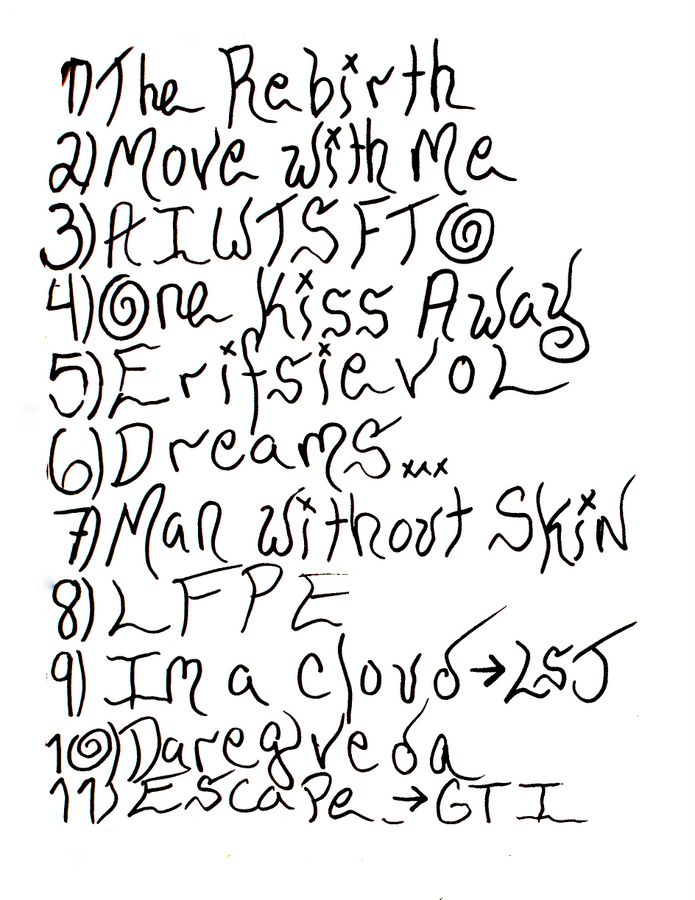 1) The Rebirth
2) Move with Me
3) AIWTSFTO
4) One Kiss Away
5) ErifsievoL
6) Dreams...
7) Man without Skin
8) LFPE
9) Im a cloud → LSJ
10) Daregveda
11) Escape → GTI